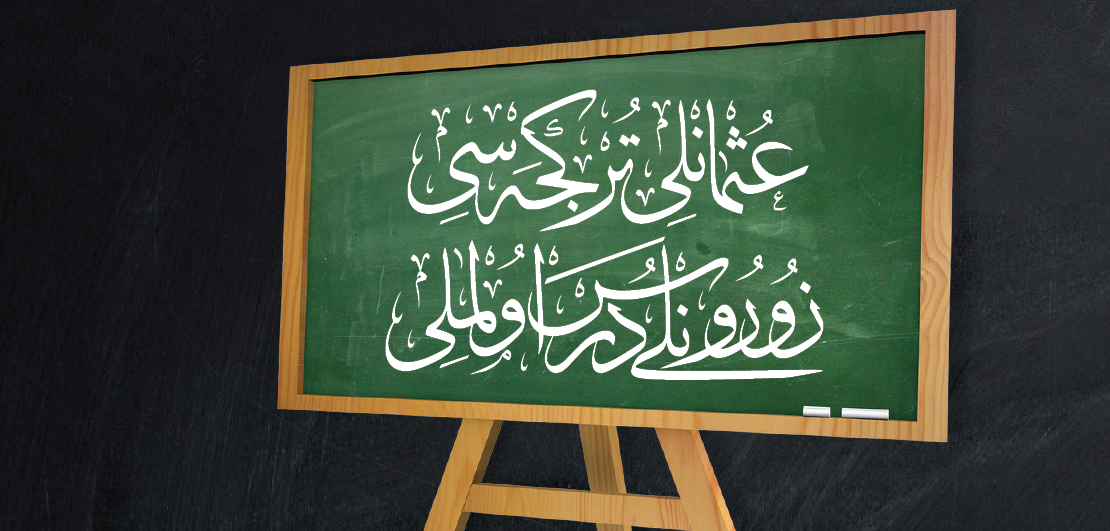 عُثمانلِی تُرکجَه سِی
زُورُونلُی دَرس اُولملِی